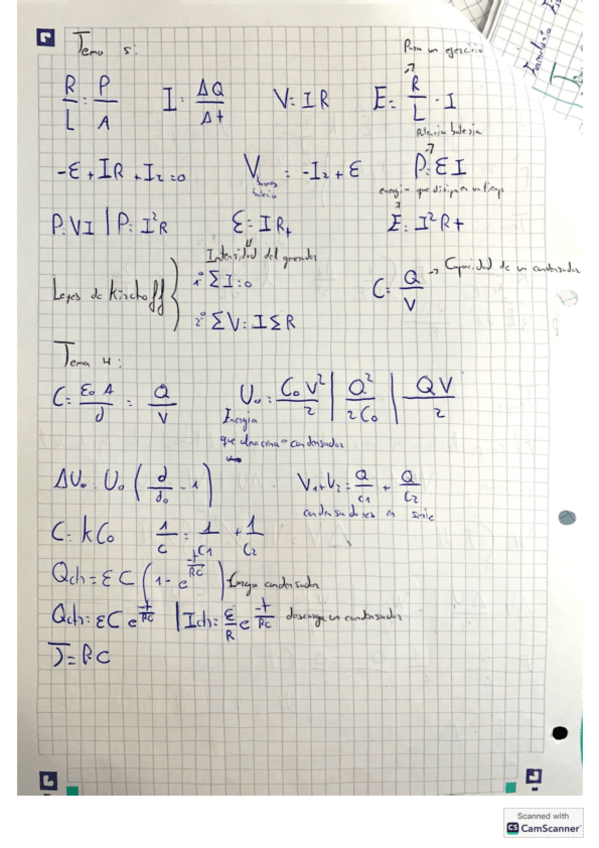 Tema 5:
Para un ejercicio
R/L = P/A   I = ΔQ/Δt   V = IR   E = R/L · I
Potencia batería
-ε + IR + Ir = 0   V = -Ir + ε   P = εI
energía que disipa en un tiempo
P = VI | P = I²R   ε = IRt   E = I²Rt
Intensidad del generador
Leyes de Kirchoff } 1º ΣI = 0   C = Q/V → Capacidad de un condensador
2º ΣV = IΣR
Tema 4:
C = ε₀A/d = Q/V   U₀ = C₀V²/2 | Q²/2C₀ | QV/2
Energía
que almacena un condensador
ΔU₀ = U₀(d/d₀ - 1)   V₁+V₂ = Q/C1 + Q/C2
condensadores en serie
C = kC₀   1/C = 1/C1 + 1/C2
Q(t) = εC(1 - e^(-t/RC)) carga condensador
Q(t) = εC e^(-t/RC) | I(t) = ε/R e^(-t/RC) descarga un condensador
T = RC
Scanned with
CS CamScanner